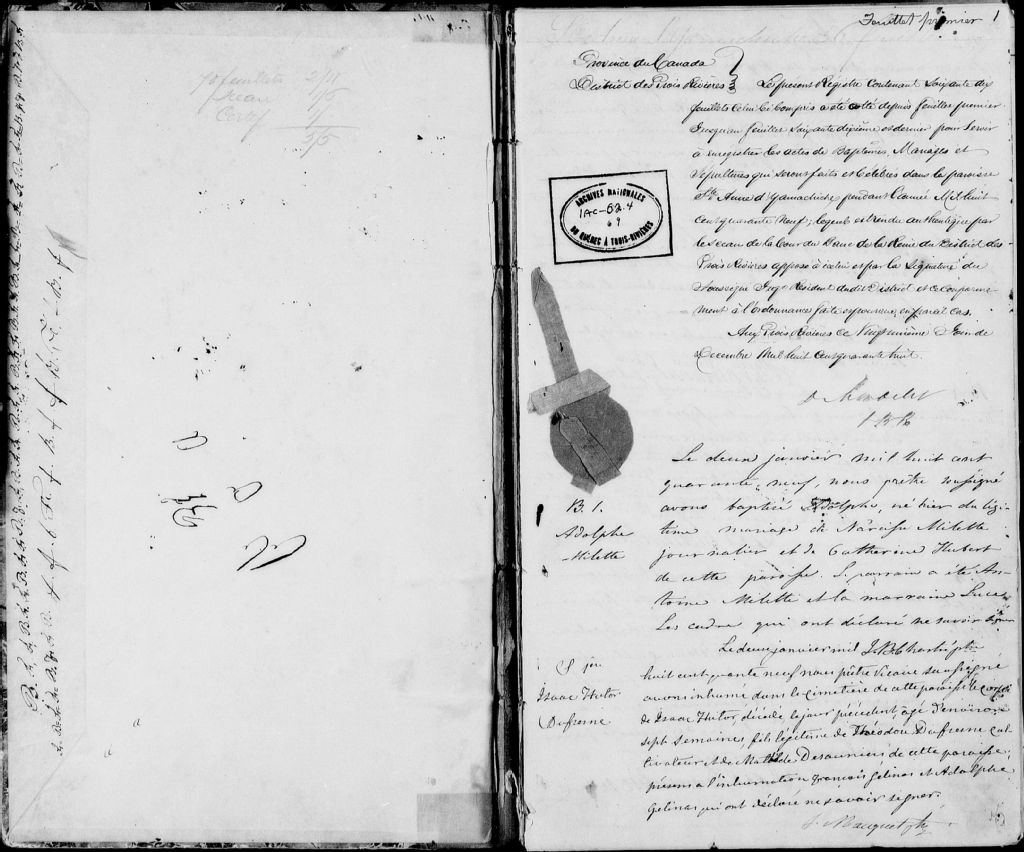 Feuillet premier 1
70 feuillets 2/11
Sceau 1/5
3/5
Province du Canada
District des Trois Rivières
Le présent Registre contenant Soixante dix
feuillets celui ci compris a été coté depuis feuillet premier
Jusqu'au feuillet Soixante dixième et dernier pour Servir
à enregistrer les actes de Baptêmes, Mariages et
Sépultures qui seront faits et célébrés dans la paroisse
Ste Anne d'Yamachiche pendant l'année Mil huit
Cent quarante Neuf; lequel est rendu authentique par
le Sceau de la Cour du Banc de la Reine du District des
Trois Rivières apposé à icelui et par la Signature du
Soussigné Juge Résident du dit District et ce conformé-
ment à l'Ordonnance faite et pourvue en pareil cas.
Aux Trois Rivières ce Vingt unième Jour de
Décembre Mil huit Cent quarante huit.
ARCHIVES NATIONALES
IAC-62.4
69
DU QUÉBEC À TROIS-RIVIÈRES
B. 1.
Adolphe
Milette
Le deux janvier mil huit cent
quarante-neuf, nous prêtre soussigné
avons baptisé Adolphe, né hier du légi-
time mariage de Narcisse Milette
journalier et de Catherine Hubert
de cette paroisse. Le parrain a été An-
toine Milette et la marraine Luce
Les cadre qui ont déclaré ne savoir signer
S 1er
Isaac Hutor
Dufresne
Le deux janvier mil
huit cent quarante neuf nous prêtre Vicaire soussigné
avons inhumé dans le cimetière de cette paroisse le corps
de Isaac Hutor, décédé le jour précédent, âgé d'environ
sept semaine, fils légitime de Théodore Dufresne cul-
tivateur et de Mathilde Desauniers de cette paroisse;
présens à l'inhumation François Gelinas et Adolphe
Gelinas qui ont déclaré ne savoir signer.